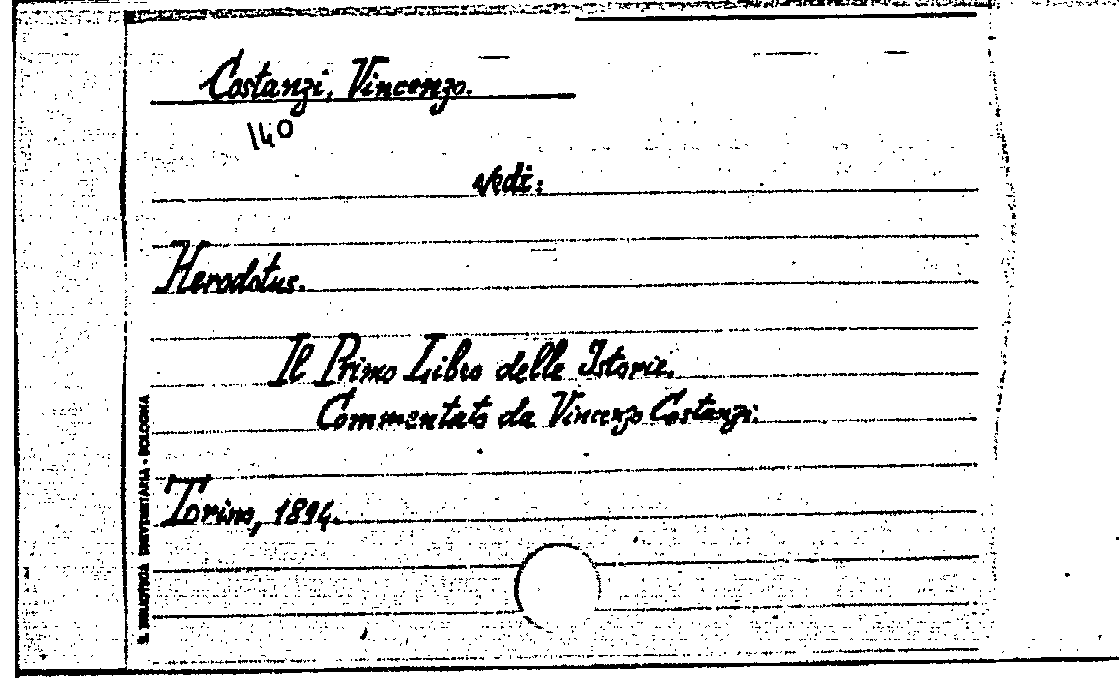 Costanzi, Vincenzo.
140
vedi:
Herodotus.
Il Primo Libro delle Istorie.
Commentato da Vincenzo Costanzi.
Torino, 1894.
R. BIBLIOTECA UNIVERSITARIA - BOLOGNA